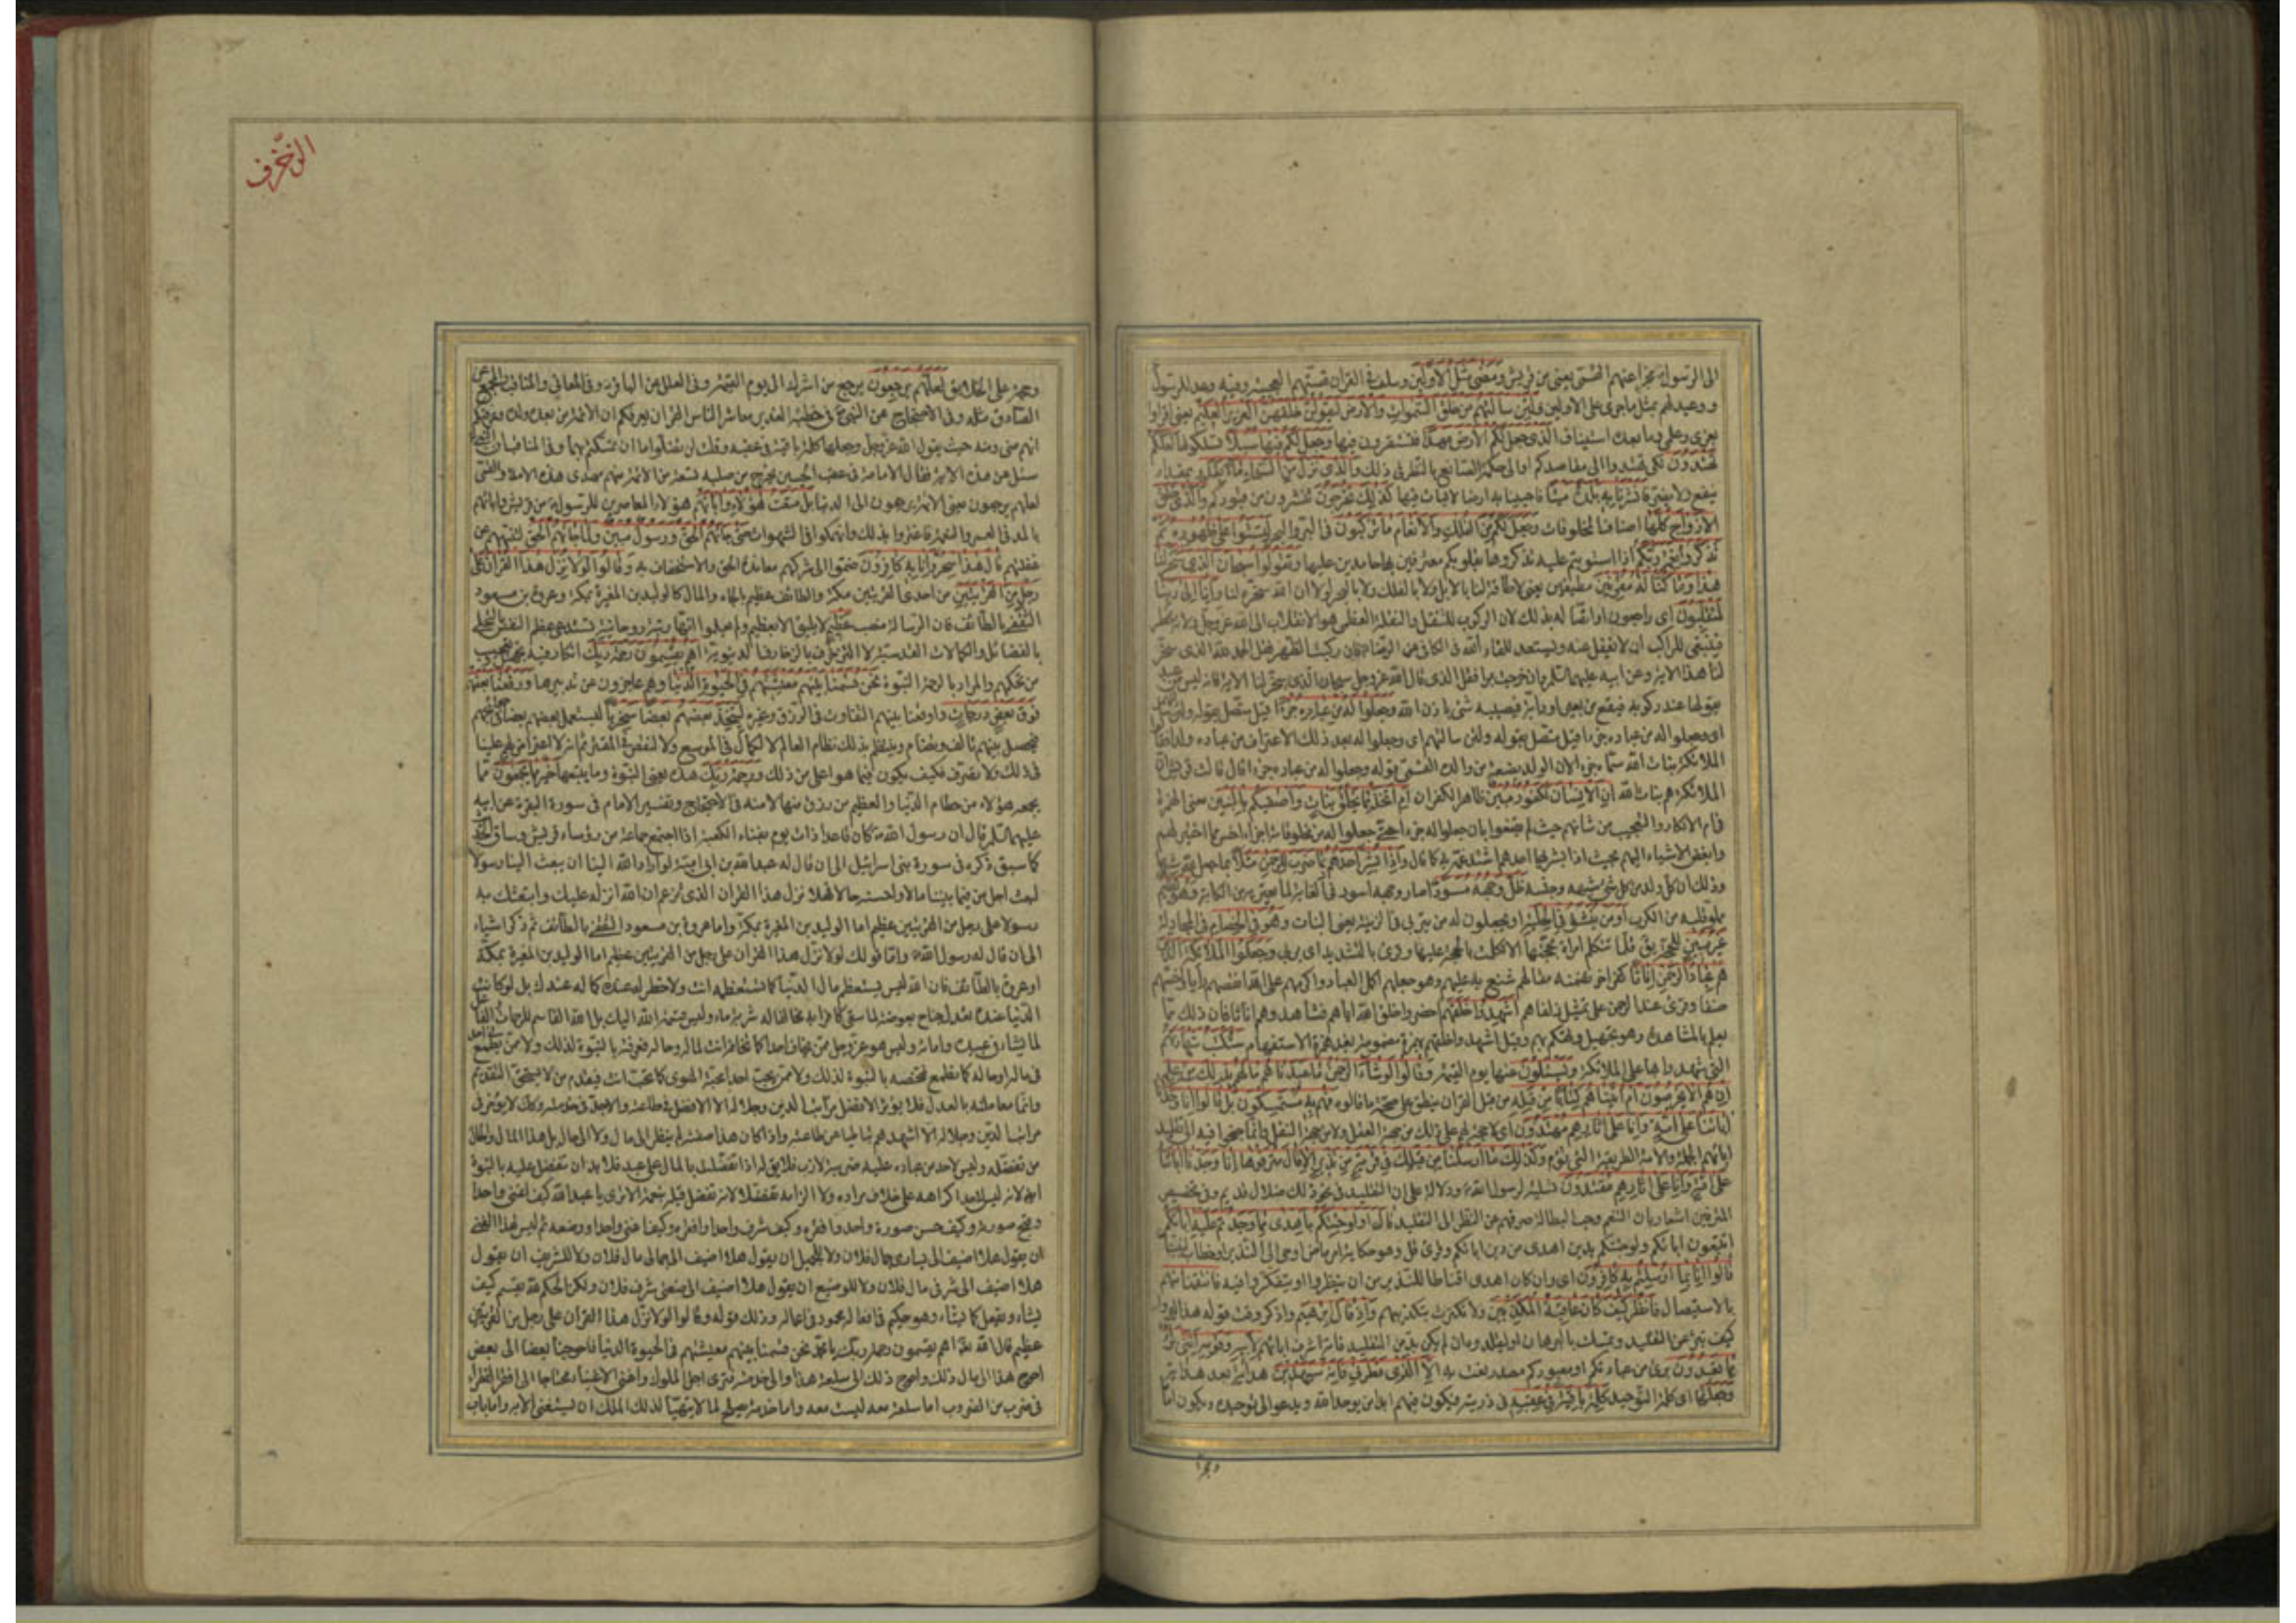 الزخرف
الى الرسول مخبرا عنهم القمّى يعنى من قريش ومضى مثل الاولين وسلف فى القران قصّتهم العجيبة وفيه وعد للرسول
ووعيد لهم بمثل ما جرى على الاولين ولئن سالتهم من خلق السموات والارض ليقولن خلقهن العزيز العليم
وما بعده استيناف الذى جعل لكم الارض مهدا فتستقرون فيها وجعل لكم فيها سبلا تسلكونها لعلكم
تهتدون لكى تهتدوا الى مقاصدكم او الى حكمة الصانع بالنظر فى ذلك والذى نزل من السماء ماء بقدر بمقدار
ينفع ولا يضر فانشرنا به بلدة ميتا فاحيينا به ارضا لا نبات فيها كذلك تخرجون تنشرون من قبوركم والذى خلق
الازواج كلها اصناف المخلوقات وجعل لكم من الفلك والانعام ما تركبون فى البر والبحر لتستوا على ظهوره ثم
تذكروا نعمة ربكم اذا استويتم عليه تذكروها بقلوبكم معترفين بها حامدين عليها وتقولوا سبحان الذى سخر لنا
هذا وما كنا له مقرنين مطيقين يعنى لا طاقة لنا بالابل ولا بالفلك ولا بالبحر لولا ان الله سخره لنا وانا الى ربنا
لمنقلبون اى راجعون واتصاله بذلك لان الركوب للتنقل والنقلة العظمى هو الانقلاب الى الله عز وجل ولانه مخطر
فينبغى للراكب ان لا يغفل عنه ويستعد للقاء الله فى الكافى عن الرضا فان ركبت الظهر فقل الحمد لله الذى سخر
لنا هذا الاية وعن ابيه عليهما السلم وان خرجت برا فقل الذى قال الله عز وجل سبحان الذى سخر لنا الاية فانه ليس من عبد
يقولها عند ركوبه فيقع من بعير او دابة فيصيبه شئ باذن الله وجعلوا له من عباده جزءا قيل متصل بقوله ولئن سالتهم
اى وجعلوا له من عباده جزءا قيل متصل بقوله ولئن سالتهم اى وجعلوا له بعد ذلك الاعتراف من عباده ولدا فقالوا
الملائكة بنات الله سماه جزء لان الولد بضعة من والده القمى قوله وجعلوا له من عباده جزءا قال قالت قريش ان
الملائكة هم بنات الله ان الانسان لكفور مبين ظاهر الكفران ام اتخذ مما يخلق بنات واصفيكم بالبنين معنى الهمزة
فى ام الانكار والتعجب من شانهم حيث لم يقنعوا بان جعلوا له جزءا حتى جعلوا له من مخلوقاته اجزاء اخس مما اختير لهم
وابغض الاشياء اليهم بحيث اذا بشر بها احدهم اشتد غمه به كما قال واذا بشر احدهم بما ضرب للرحمن مثلا
وذلك ان كل ولد من كل شئ شبهه وجنسه ظل وجهه مسودا صار وجهه اسود فى الغاية لما يعتريه من الكابة وهو كظيم
مملو قلبه من الكرب اومن ينشؤ فى الحلية او يجعلون له من يتربى فى الزينة يعنى البنات وهو فى الخصام فى المجادلة
غير مبين للحجة يق قلما تتكلم امراة بحجتها الا تكلمت بالحجة عليها وقرئ بالتشديد اى يربى وجعلوا الملائكة الذين
هم عباد الرحمن اناثا كفر اخر تضمنه مقالهم شنع به عليهم وهو جعلهم اكمل العباد واكرمهم على الله انقصهم رايا واخسهم
صنفا وقرئ عند الرحمن على تمثيل زلفاهم اشهدوا خلقهم احضروا خلق الله اياهم فشاهدوهم اناثا فان ذلك مما
يعلم بالمشاهدة وهو تجهيل وتهكم بهم وقيل اشهدوا خلقهم بهمزة مضمومة بعد همزة الاستفهام ستكتب شهادتهم
التى شهدوا بها على الملائكة ويسئلون عنها يوم القيمة وقالوا لو شاء الرحمن ما عبدناهم ما لهم بذلك من علم
ان هم الا يخرصون ام اتيناهم كتابا من قبله من قبل القران ينطق على صحة ما قالوه فهم به مستمسكون بل قالوا انا وجدنا
اباءنا على امة وانا على اثارهم مهتدون اى لا حجة لهم على ذلك من جهة العقل ولا من جهة النقل وانما جنحوا فيه الى تقليد
ابائهم الجهلة والامة الطريقة التى تؤم وكذلك ما ارسلنا من قبلك فى قرية من نذير الا قال مترفوها انا وجدنا اباءنا
على امة وانا على اثارهم مقتدون تسلية لرسول الله ودلالة على ان التقليد فى نحو ذلك ضلال قديم وفى تخصيص
المترفين اشعار بان التنعم وحب البطالة صرفهم عن النظر الى التقليد قال اولو جئتكم باهدى مما وجدتم عليه اباءكم
اتتبعون اباءكم ولو جئتكم بدين اهدى من دين ابائكم وقرئ قل وهو حكاية امر ماض اوحى الى النذير او خطاب لنبينا
قالوا انا بما ارسلتم به كافرون اى وان كان اهدى اقناطا للنذير من ان ينظروا او يتفكروا فيه فانتقمنا منهم
بالاستيصال فانظر كيف كان عاقبة المكذبين ولا تكترث بتكذيبهم واذ قال ابرهيم واذكر وقت قوله هذا ليروا
كيف تبرئ عن التقليد وتمسك بالبرهان او ليقلدوه ان لم يكن بد من التقليد فانه اشرف ابائهم لابيه وقومه اننى براء
مما تعبدون برئ من عبادتكم او معبودكم مصدر نعت به الا الذى فطرنى فانه سيهدين هداية بعد هداية
وجعلها اى كلمة التوحيد كلمة باقية فى عقبه فى ذريته فيكون فيهم ابدا من يوحد الله ويدعو الى توحيده ويكون اماما
وحجة على الخلايق لعلهم يرجعون يرجع من اشرك الى يوم القيمة وفى العلل عن الباقر وفى المعانى والمناقب والمجمع عن
الصادق مثله وفى الاحتجاج عن النبى فى خطبة الغدير معاشر الناس القران يعرفكم ان الائمة من بعده ولده وعرفتكم
انهم منى ومنه حيث يقول الله عز وجل وجعلها كلمة باقية فى عقبه وقلت لن تضلوا ما ان تمسكتم بهما وفى المناقب ان النبى
سئل عن هذه الاية فقال الامامة فى عقب الحسين يخرج من صلبه تسعة من الائمة منهم مهدى هذه الامة والقمى
لعلهم يرجعون يعنى الائمة يرجعون الى الدنيا بل متعت هؤلاء واباءهم هؤلاء المعاصرين للرسول من قريش واباءهم
بالمد فى العمر والنعمة فاغتروا بذلك وانهمكوا فى الشهوات حتى جاءهم الحق ورسول مبين ولما جاءهم الحق لينبههم عن
غفلتهم قالوا هذا سحر وانا به كافرون ضموا الى شركهم معاندة الحق والاستخفاف به وقالوا لولا نزل هذا القران على
رجل من القريتين من احدى القريتين مكة والطائف عظيم بالجاه والمال كالوليد بن المغيرة بمكة وعروة بن مسعود
الثقفى بالطائف فان الرسالة منصب عظيم لا يليق الا بعظيم ولم يعلموا انها رتبة روحانية تستدعى عظم النفس بالتحلى
بالفضائل والكمالات القدسية لا التزخرف بالزخارف الدنيوية اهم يقسمون رحمة ربك انكار فيه تجهيل وتعجيب
من تحكمهم والمراد بالرحمة النبوة نحن قسمنا بينهم معيشتهم فى الحيوة الدنيا وهم عاجزون عن تدبيرها ورفعنا بعضهم
فوق بعض درجات واوقعنا بينهم التفاوت فى الرزق وغيره ليتخذ بعضهم بعضا سخريا ليستعمل بعضهم بعضا فى حوائجهم
فيحصل بينهم تالف وتضام وينتظم بذلك نظام العالم لا لكمال فى الموسع ولا لنقص فى المقتر ثم انه لا اعتراض لهم علينا
فى ذلك ولا تصرف فكيف يكون فيما هو اعلى من ذلك ورحمة ربك هذه يعنى النبوة وما يتبعها خير مما يجمعون مما
يجمعه هؤلاء من حطام الدنيا والعظيم من رزق منها لا منه فى الاحتجاج وتفسير الامام فى سورة البقرة عن ابيه
عليهما السلم قال ان رسول الله كان قاعدا ذات يوم بفناء الكعبة اذا اجتمع جماعة من رؤساء قريش وساق الحديث
كما سبق ذكره فى سورة بنى اسرائيل الى ان قال له عبد الله بن ابى امية لو اراد الله الينا ان يبعث الينا رسولا
لبعث اجل من فيما بيننا مالا واحسنه حالا فهلا نزل هذا القران الذى تزعم ان الله انزله عليك وابتعثك به
رسولا على رجل من القريتين عظيم اما الوليد بن المغيرة بمكة واما عروة بن مسعود الثقفى بالطائف ثم ذكر اشياء
الى ان قال له رسول الله واما قولك لولا نزل هذا القران على رجل من القريتين عظيم اما الوليد بن المغيرة بمكة
او عروة بالطائف فان الله ليس يستعظم مال الدنيا كما تستعظمه انت ولا خطر له عنده كما له عندك بل لو كانت
الدنيا عنده تعدل جناح بعوضة لما سقى كافرا به مخالفا له شربة ماء وليس قسمة الله اليك بل الله القاسم للرحمات الفاعل
لما يشاء فى عبيده وامائه وليس هو عز وجل ممن يخاف احدا كما تخافه انت لماله وحاله فعرفته بالنبوة لذلك ولا ممن يطمع فى احد
فى ماله او حاله كما تطمع فتخصه بالنبوة لذلك ولا ممن يحب احدا محبة الهوى كما تحب انت فيقدم من لا يستحق التقديم
وانما معاملته بالعدل فلا يؤثر الا لافضل مراتب الدين وجلاله الا الافضل فى طاعته والاجد فى خدمته وكذلك لا يؤخر فى
مراتب الدين وجلاله الا اشدهم تباطيا عن طاعته واذا كان هذا صفته لم ينظر الى مال ولا الى حال بل هذا المال والحال
من تفضله وليس لاحد من عباده عليه ضريبة لازب فلا يق له اذا تفضلت بالمال على عبد فلا بد ان تتفضل عليه بالنبوة
ايضا لانه ليس لاحد اكراهه على خلاف مراده ولا الزامه تفضلا لانه تفضل قبله بنعمة الا ترى يا عبد الله كيف اغنى واحدا
وقبح صورته وكيف حسن صورة واحد وافقره وكيف شرف واحدا وافقره وكيف اغنى واحدا ووضعه ثم ليس لهذا الغنى
ان يقول هلا اضيف الى يسارى جمال فلان ولا للجميل ان يقول هلا اضيف الى جمالى مال فلان ولا للشريف ان يقول
هلا اضيف الى شرفى مال فلان ولا للوضيع ان يقول هلا اضيف الى ضعتى شرف فلان ولكن الحكم لله يقسم كيف
يشاء ويفعل كما يشاء وهو حكيم فى افعاله محمود فى اعماله وذلك قوله وقالوا لولا نزل هذا القران على رجل من القريتين
عظيم قال الله تعا اهم يقسمون رحمة ربك يا محمد نحن قسمنا بينهم معيشتهم فى الحيوة الدنيا فاحوجنا بعضا الى بعض
احوج هذا الى مال ذلك واحوج ذلك الى سلعة هذا والى خدمته فترى اجل الملوك واغنى الاغنياء محتاجا الى افقر الفقراء
فى ضرب من الضروب اما سلعة معه ليست معه واما خدمة يصلح لما لا يتهيا لذلك الملك ان يستغنى الا به واما باب